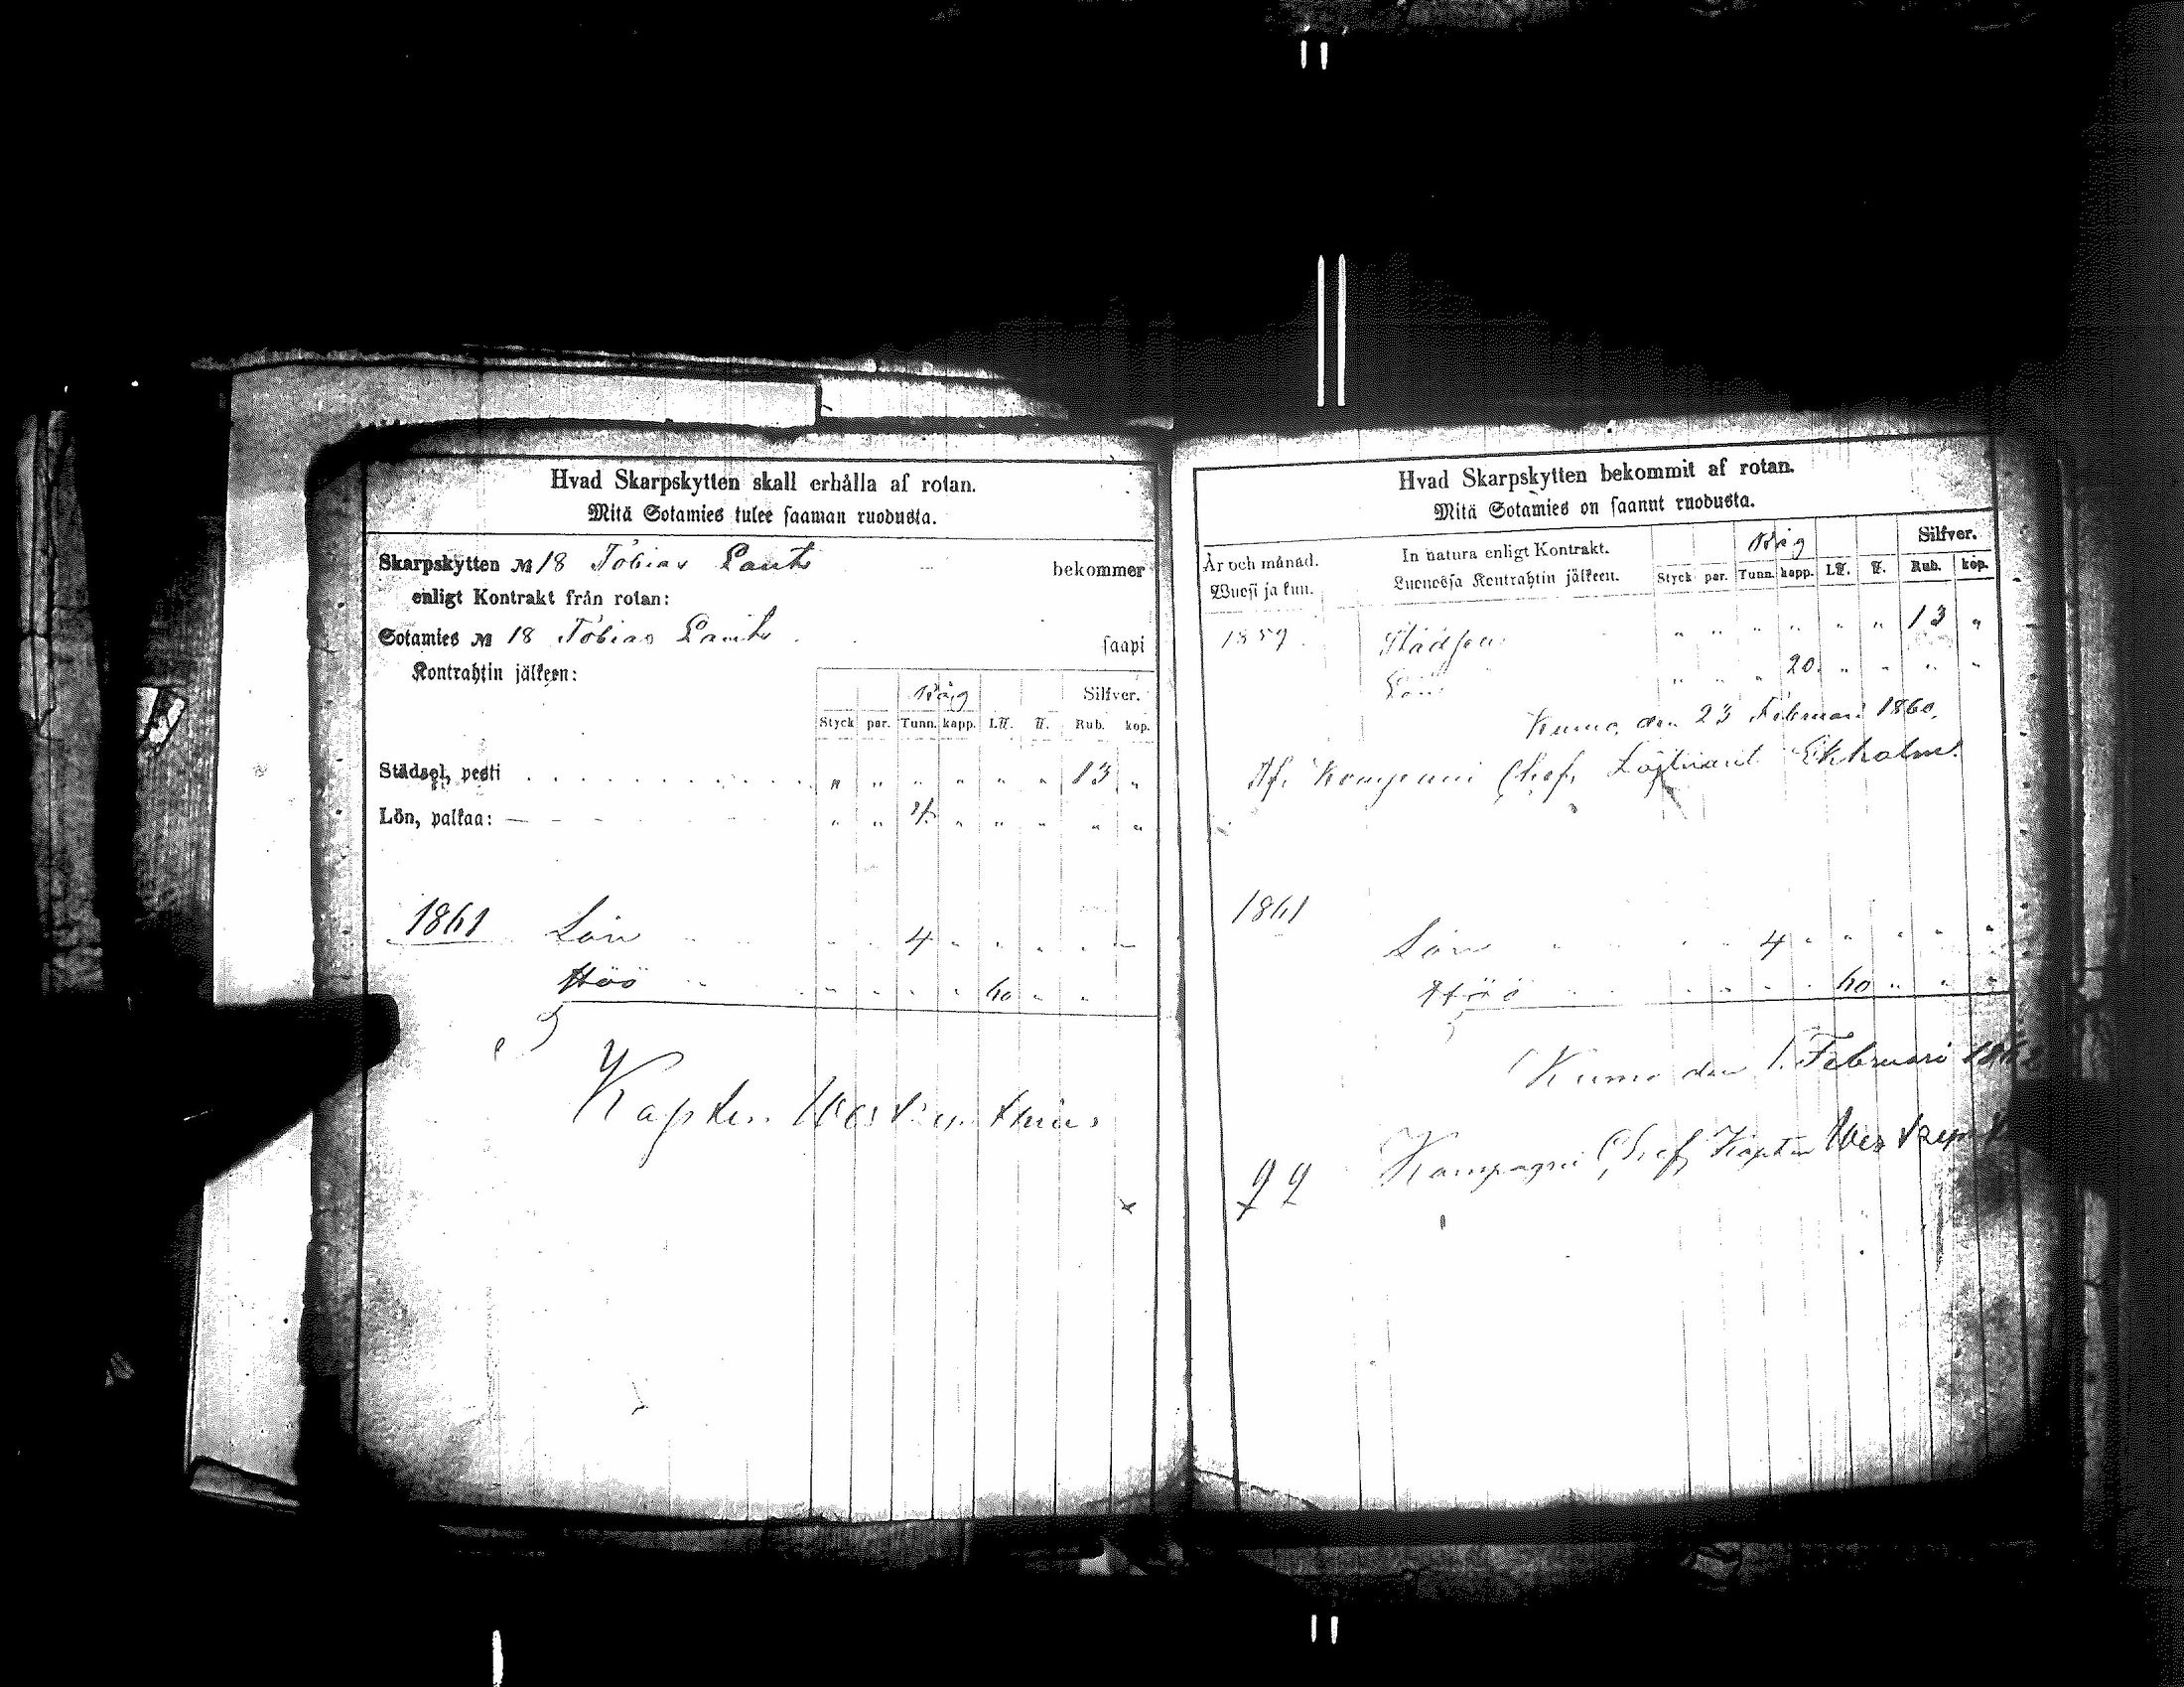 Hvad Skarpskytten skall erhålla af rotan.
Mitä Sotamies tulee saaman ruodusta.
Skarpskytten № 18 Tobias bekommer
enligt Kontrakt från rotan:
Sotamies № 18 Tobias saapi
Kontrahtin jälkeen:
Råg Silfver.
Styck par. Tunn. kapp. L℔. ℔. Rub. kop.
Städsel, pesti . . . . . . . . . . . . „ „ „ „ „ „ 13 „
Lön, palkaa: — „ „ 4 „ „ „ „ „
1861 Lön „ „ 4 „ „ „ „ „
Höö „ „ „ „ „ „ „
Kapten
Hvad Skarpskytten bekommit af rotan.
Mitä Sotamies on saanut ruodusta.
År och månad. In natura enligt Kontrakt. Råg Silfver.
Wuosi ja kuu. Luonossa Kontrahtin jälkeen. Styck par. Tunn. kapp. L℔. ℔. Rub. kop.
1859 Städsel „ „ „ „ „ „ 13 „
Lön „ „ „ 20 „ „ „ „
Kumo den 23 Februari 1860.
Af. Kompani Chef, Löjtnant Ekholm.
1861
Lön „ „ 4 „ „ „ „ „
Höö „ „ „ „ „ „ „
Kumo den 1. Februari
Kompagni Chef, Kapten